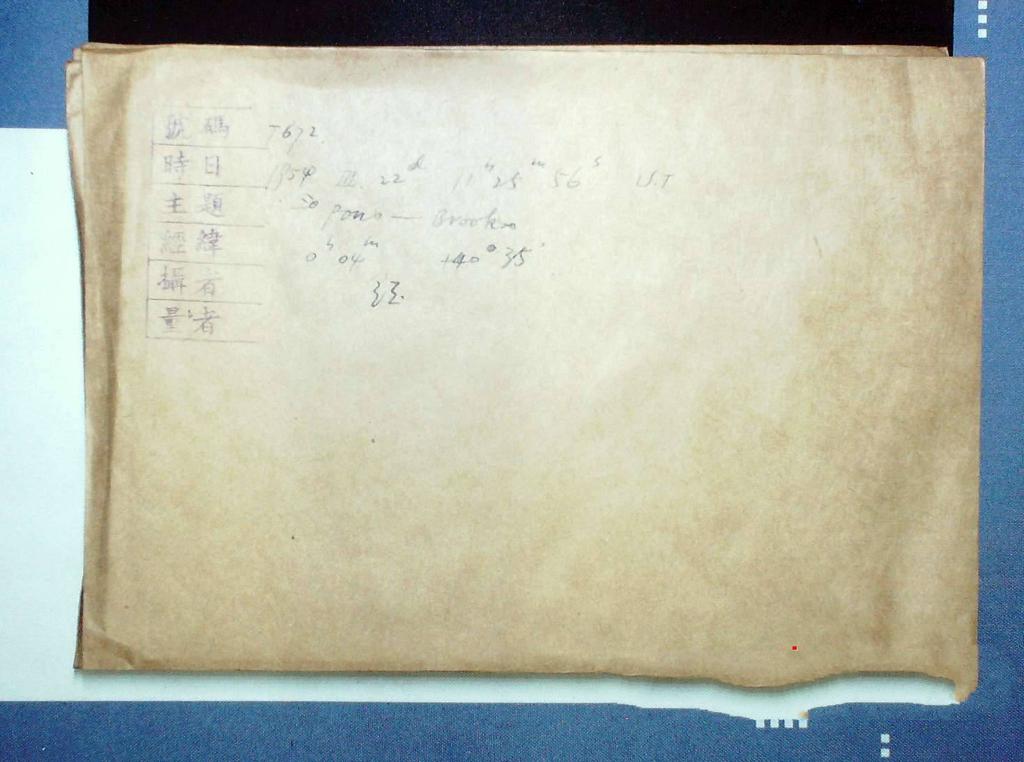 號碼 7672
時日 1954 III. 22ᵈ 11ʰ 25ᵐ 56ˢ U.T
主題 Pons — Brooks
經緯 0ʰ 04ᵐ +40° 35'
攝者
量者